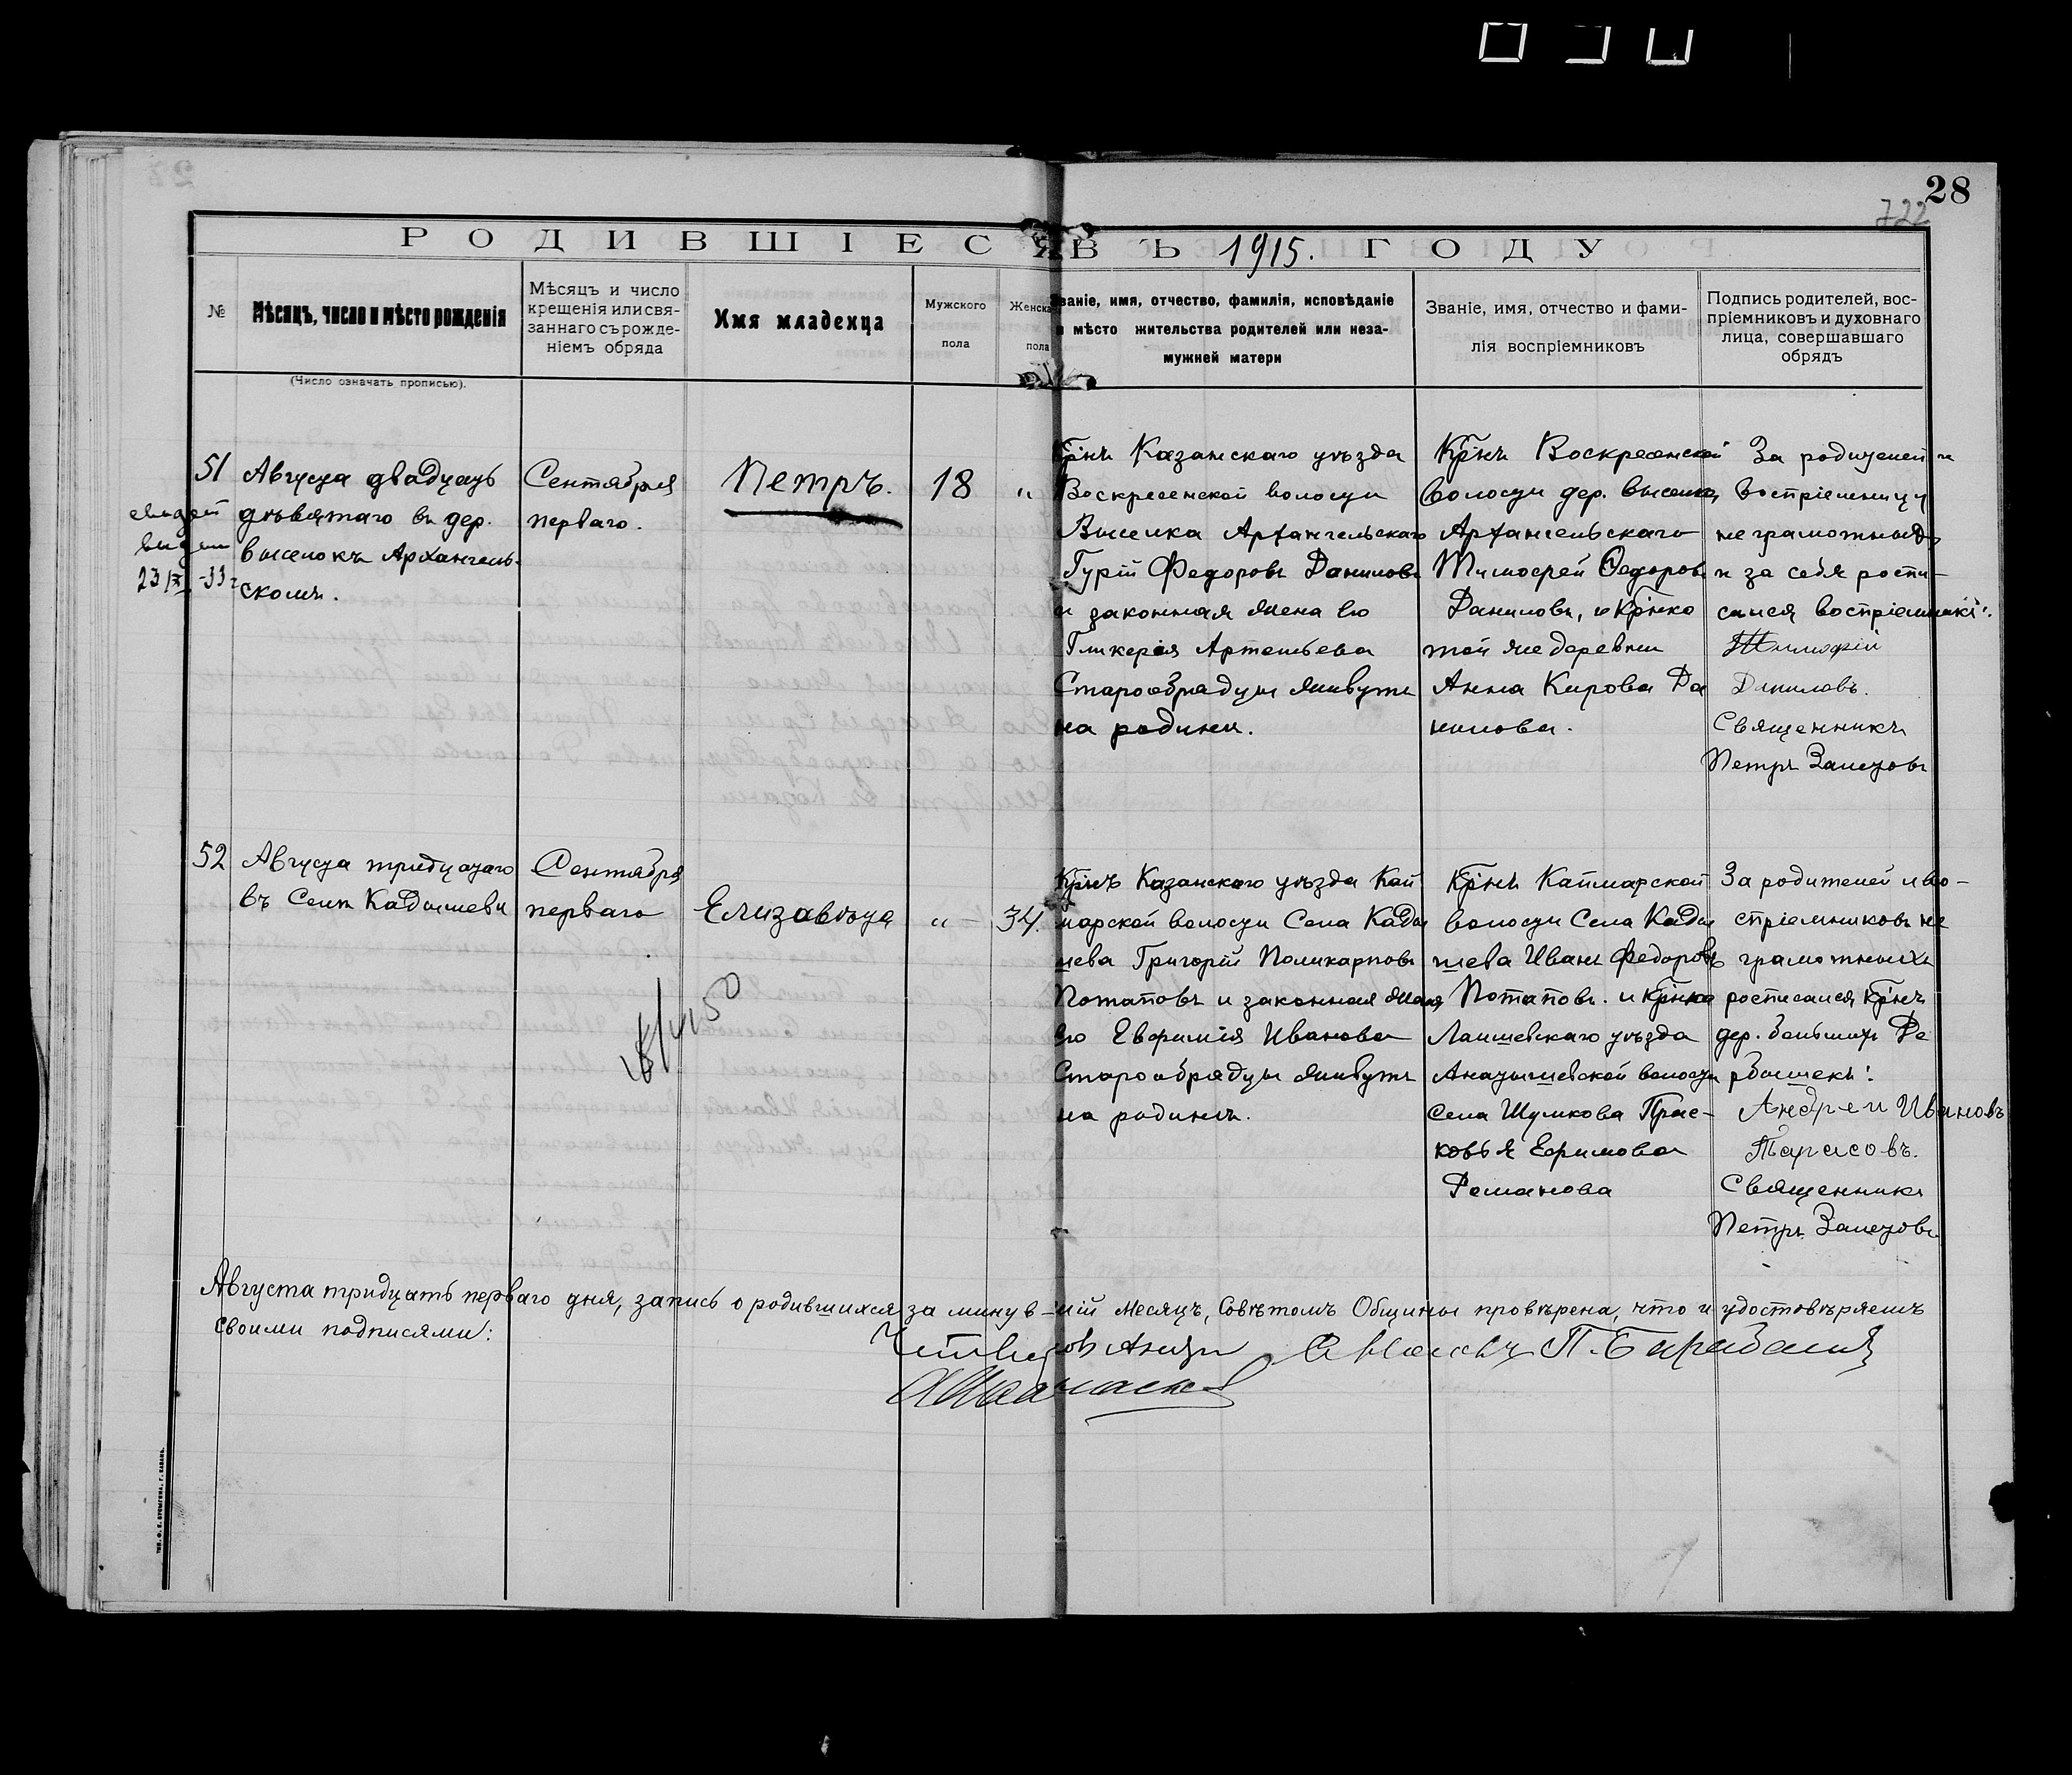 28
722
РОДИВШІЕСЯ ВЪ 1915. ГОДУ
№
Мѣсяцъ, число и мѣсто рожденія
(Число означать прописью).
Мѣсяцъ и число
крещенія или свя-
заннаго съ рожде-
ніемъ обряда
Имя младенца
Мужского
пола
Женска
пола
Званіе, имя, отчество, фамилія, исповѣданіе
и мѣсто жительства родителей или неза-
мужней матери
Званіе, имя, отчество и фами-
лія воспріемниковъ
Подпись родителей, вос-
пріемниковъ и духовнаго
лица, совершавшаго
обрядъ
51
Августа двадцать
дѣвятаго въ дер.
выселокъ Архангель-
скомъ.
23/IX-33г
Сентября
перваго.
Петръ.
18
"
Крнъ Казанскаго уѣзда
Воскресенской волости
Выселка Архангельскаго
Гурій Федоровъ Даниловъ
и законная жена его
Гликерія Артемьева
Старообрядцы живутъ
на родинѣ.
Крнъ Воскресенской
волости дер. выселка
Архангельскаго
Тимофей Федоровъ
Даниловъ, и Крнка
той же деревни
Анна Кирова Да
нилова.
За родителей и
воспріемницу
неграмотныхъ
и за себя роспи-
сался воспріемникъ:
Тимофій
Даниловъ.
Священникъ
Петръ Залетовъ
52
Августа тридцатаго
въ Селѣ Кадышеви
Сентября
перваго
Елизавѣта
" -
34.
Крнъ Казанскаго уѣзда Кай
марской волости Села Кады
шева Григорій Поликарповъ
Потаповъ и законная жена
его Евфимія Иванова
Старообрядцы живутъ
на родинѣ.
Крнъ Каймарской
волости Села Кады
шева Иванъ Федоровъ
Потаповъ. и Крнка
Лаишевскаго уѣзда
Анатышевской волости
Села Шумкова Прас-
ковья Ефимова
Романова
За родителей и во-
стріемниковъ не
грамотныхъ
росписался Крнъ
дер. большихъ Де
рбышекъ:
Андреи Ивановъ
Тарасовъ.
Священникъ
Петръ Залетовъ
Августа тридцать перваго дня, запись о родившихся за минув-шій месяцъ, Совѣтомъ Общины провѣрена, что и удостовѣряетъ
своими подписями: